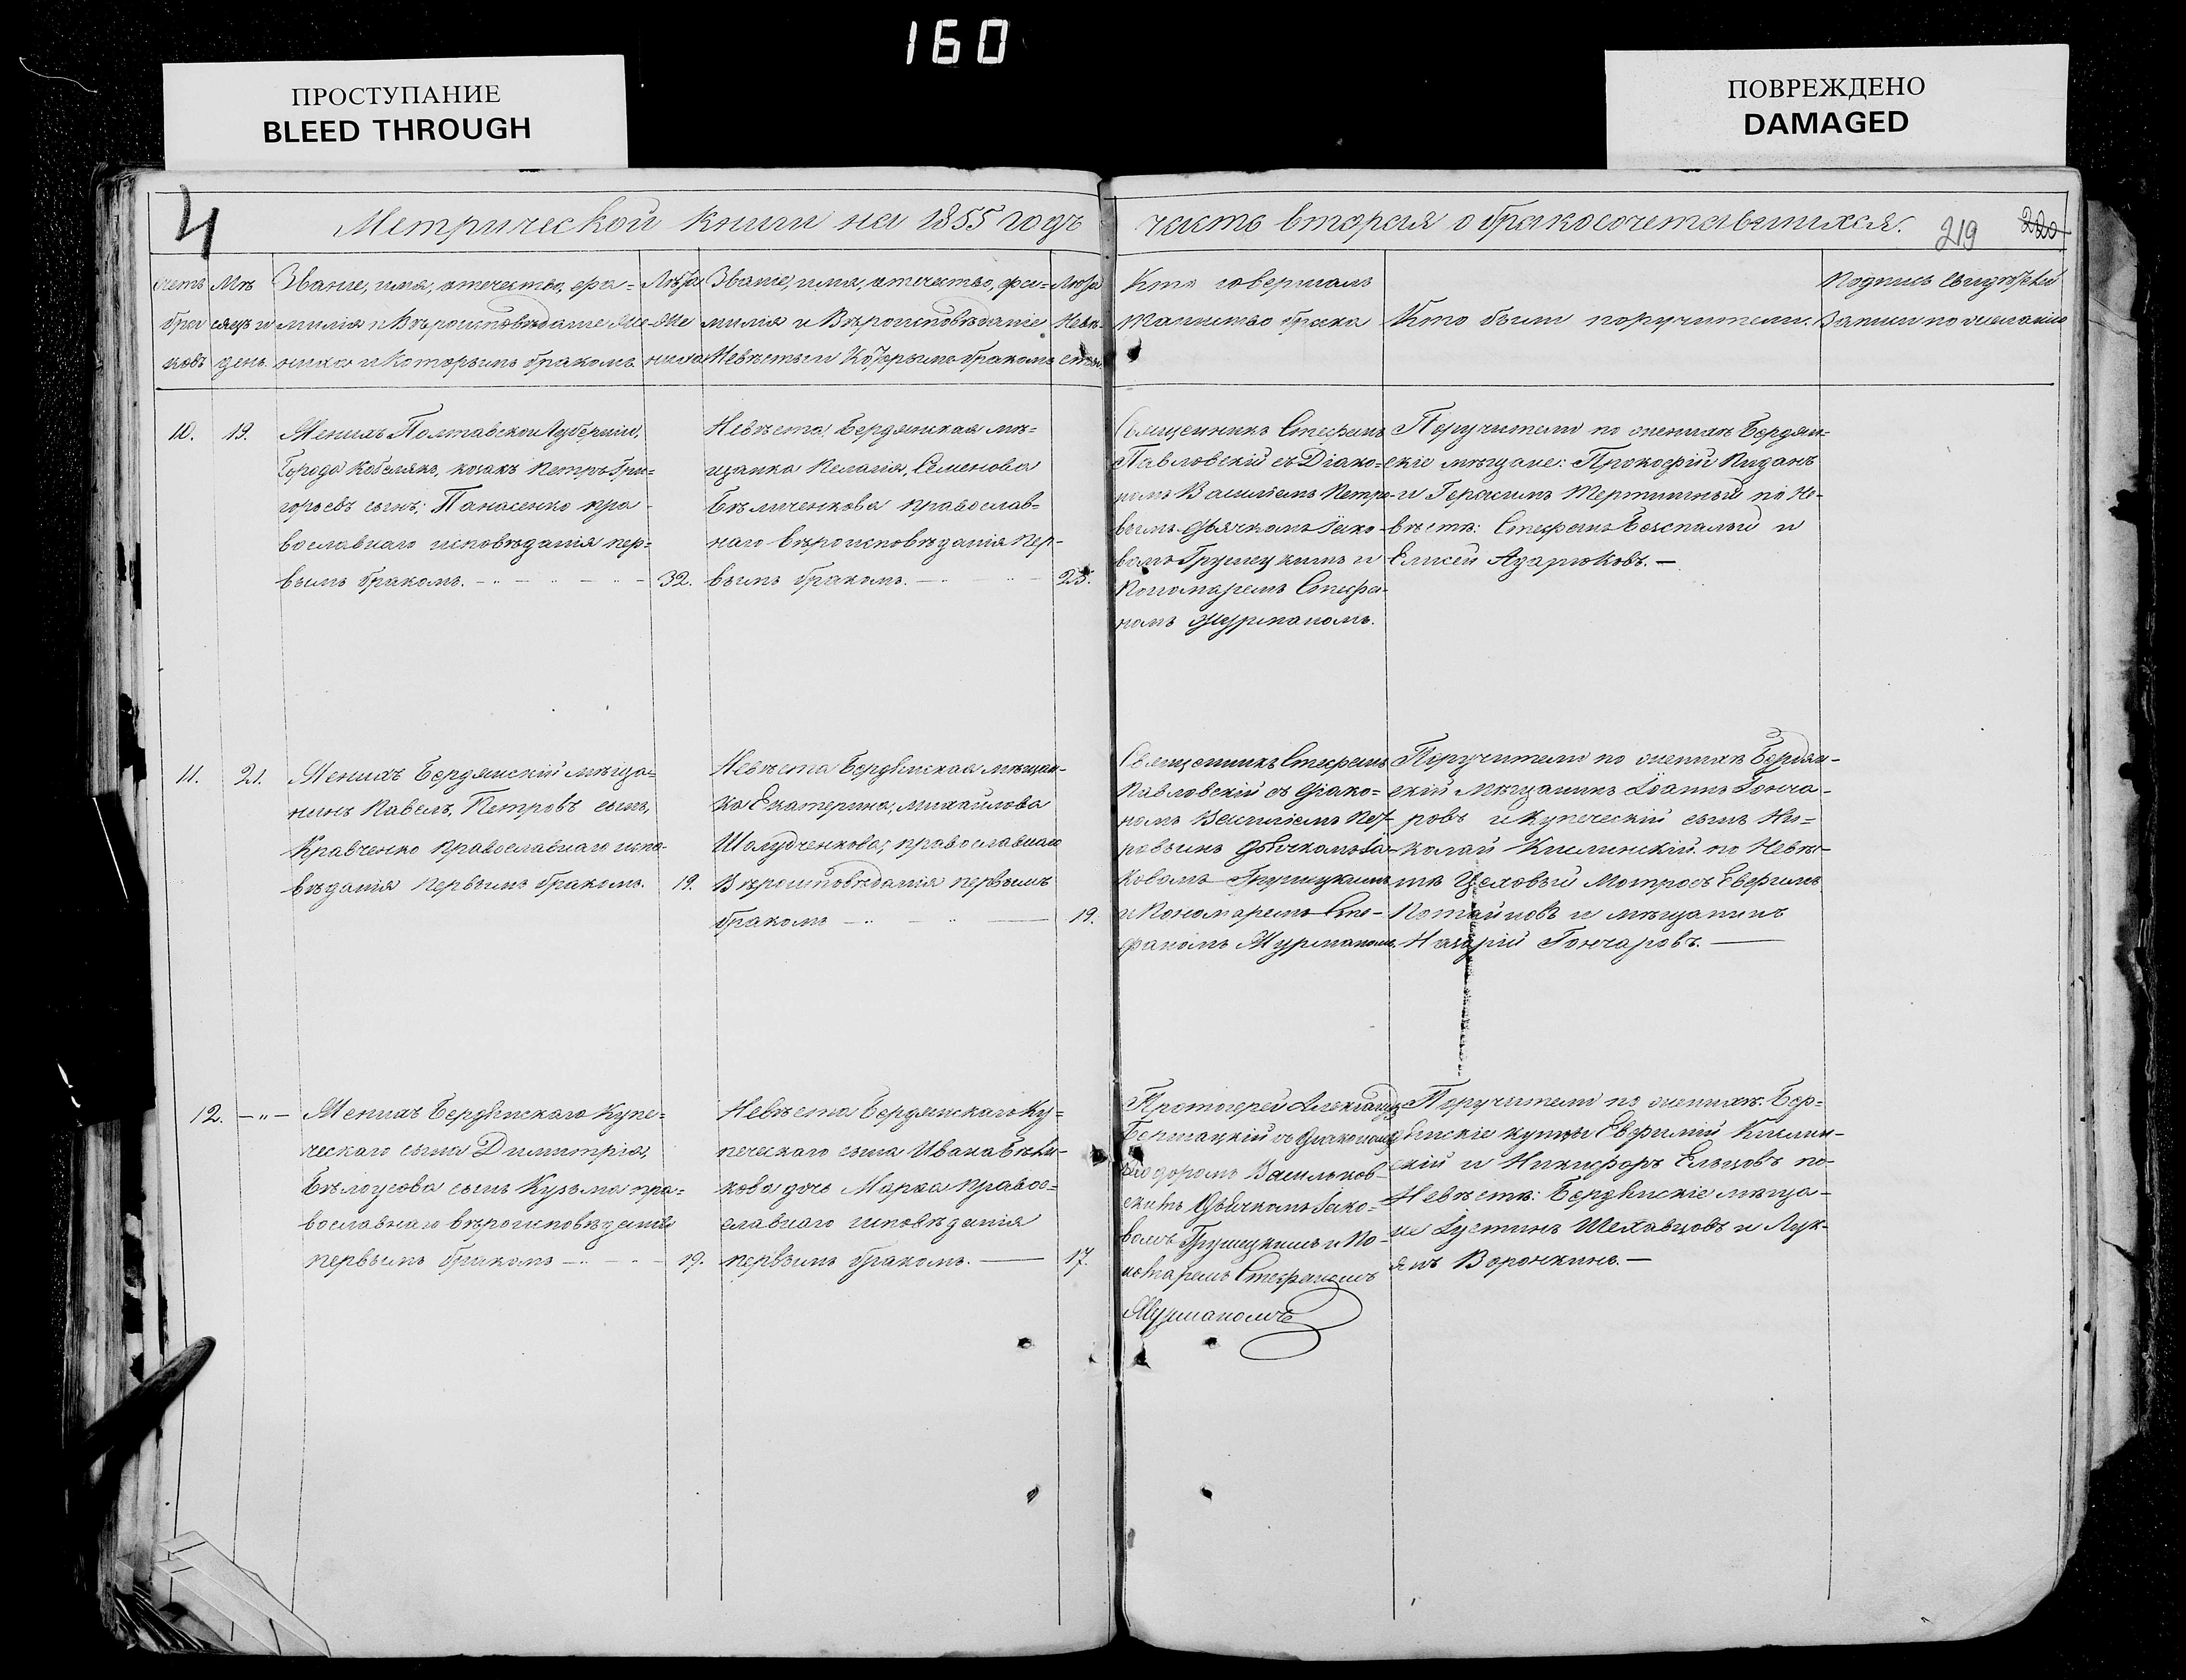 160
ПРОСТУПАНИЕ
BLEED THROUGH
ПОВРЕЖДЕНО
DAMAGED
4
Метрической книги на 1855 годъ
часть вторая о бракосочетавшихся.
219
220
Счетъ
бра
ковъ
Мѣ
сяцъ и
день.
Званіе, имя, отечество, фа=
милія и Вѣроисповѣданіе Же=
ниха и Которымъ бракомъ.
Лѣта
Же
ниха
Званіе, имя, отечество, фа=
милія и Вѣроисповѣданіе
Невѣсты и Которымъ бракомъ
Лѣта
Невѣ
сты
Кто совершалъ
Таинство брака
Кто были поручители.
Подпись свидѣтелей
Записи по желанію
10.
19.
Женихъ Полтавской Губерніи,
Города Кобелякъ, козакъ Петръ Гри=
горьевъ сынъ; Панасенко пра
вославнаго исповѣданія пер=
вымъ бракомъ.
32.
Невѣста Бердянская мѣ=
щанка Пелагія, Семенова
Бѣличенкова православ=
наго вѣроисповѣданія пер-
вымъ бракомъ.
25.
Священникъ Стефанъ
Павловскій съ Діако=
номъ Василіемъ Петро-
вымъ Дьячкомъ Іако-
вомъ Грушецкимъ и
Пономаремъ Стефа-
номъ Журманомъ.
Поручители по женихѣ Бердян=
скіе мѣщане: Прокофій
и Герасимъ по Не-
вѣстѣ: Стефанъ Безпалый и
Елисей Азарюковъ.
11.
21.
Женихъ Бердянскій мѣща=
нинъ Павелъ, Петровъ сынъ,
Кравченко православнаго испо-
вѣданія первымъ бракомъ.
19.
Невѣста Бердянская мѣщан-
ка Екатерина, михайлова
православнаго
Вѣроисповѣданія первымъ
бракомъ
19.
Священникъ Стефанъ
Павловскій съ Діако=
номъ Василіемъ Пет-
ровымъ Дьячкомъ Іа-
ковомъ Грушецкимъ
и Пономаремъ Сте-
фаномъ Журманомъ
Поручители по женихѣ Бердян-
скій Мѣщанинъ Іоаннъ Гонча-
ровъ и купеческій сынъ Ни=
колай Кислинскій по Невѣ-
стѣ Цеховый Матросъ Евфимъ
и мѣщанинъ
Назарій Гончаровъ.
12.
Женихъ Бердянскаго Купе=
ческаго сына Димитрія,
Бѣлоусова сынъ Кузьма пра=
вославнаго вѣроисповѣданія
первымъ бракомъ
19.
Невѣста Бердянскаго Ку=
печескаго сына Ивана
кова дочь Марѳа Правос=
славнаго исповѣданія
первымъ бракомъ.
17.
Протоіерей Александръ
съ Діакономъ
Ѳеодоромъ Васильков-
скимъ Дьячкомъ Іако=
вомъ Грушецкимъ и По-
номаремъ Стефаномъ
Журманомъ
Поручители по женихѣ. Бер=
дянскіе купцы Евфимій Кислин-
скій и Никифоръ Ельцовъ по-
Невѣстѣ: Бердянскіе мѣща-
не Іустинъ Шехавцовъ и Лук-
янъ Воронкинъ.